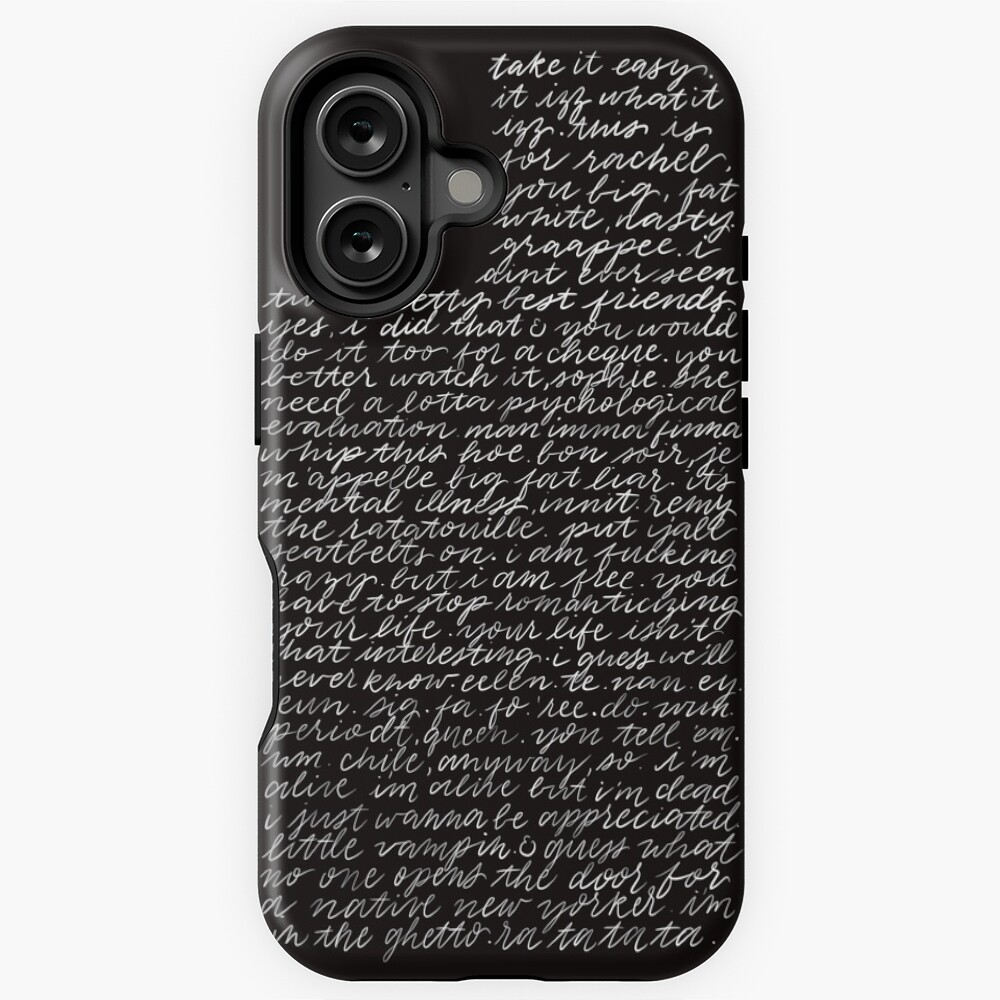 take it easy.
it izz what it
izz. this is
for rachel,
you big, fat
white, nasty.
graappee. i
aint ever seen
tw etty best friends.
yes, i did that & you would
do it too for a cheque. you
better watch it, sophie. she
need a lotta psychological
evaluation. man imma finna
whip this hoe. bon soir, je
m'appelle big fat liar. it's
mental illness, innit. remy
the ratatouille. put jall
seatbelts on. i am fucking
razy. but i am free. you
have to stop romanticizing
your life. your life isn't
that interesting. i guess we'll
ever know. eelen. te. nan. ey.
eun. sig. fa. fo. 'ree. do wun.
periodt, queen. you tell 'em.
um. chile, anyway, so. i'm
alive i'm alive but i'm dead
i just wanna be appreciated.
little vampin. & guess what
no one opens the door for
a native new yorker. i'm
in the ghetto. ra ta ta ta.